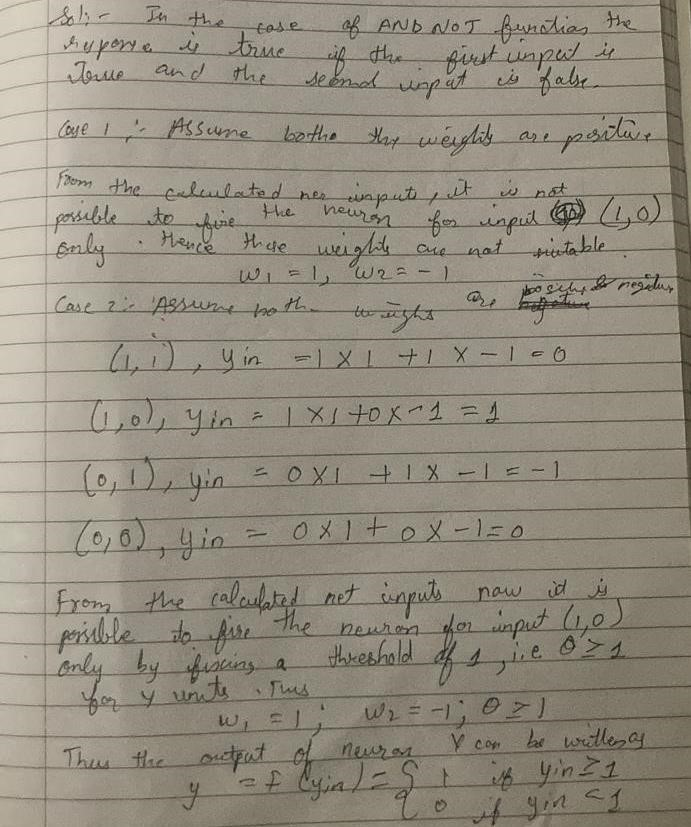 Sol:- In the case of AND NOT function the
response is true if the first input is
True and the second input is false.
Case 1 :- Assume bothe the weights are positive
From the calculated net inputs, it is not
possible to fire the neuron for input (1,0)
only. Hence these weights are not suitable.
w1 = 1, w2 = -1
Case 2:- Assume both weights are negative
(1,1), yin = 1 X 1 + 1 X - 1 = 0
(1,0), yin = 1 X 1 + 0 X - 1 = 1
(0,1), yin = 0 X 1 + 1 X - 1 = -1
(0,0), yin = 0 X 1 + 0 X - 1 = 0
From the calculated net inputs now id is
possible to fire the neuron for input (1,0)
only by fixing a threshold of 1, i.e θ ≥ 1
for Y units. Thus
w1 = 1; w2 = -1; θ ≥ 1
Thus the output of neuron Y can be written as
y = f (yin) = { 1 if yin ≥ 1
0 if yin < 1